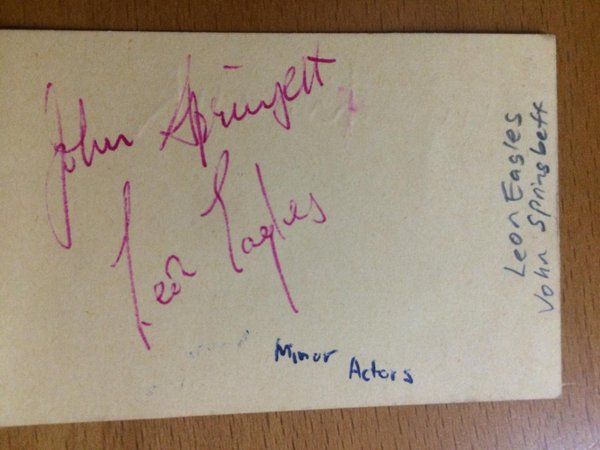 John Springett
Leon Eagles
Minor
Actors
Leon Eagles
John Springbett